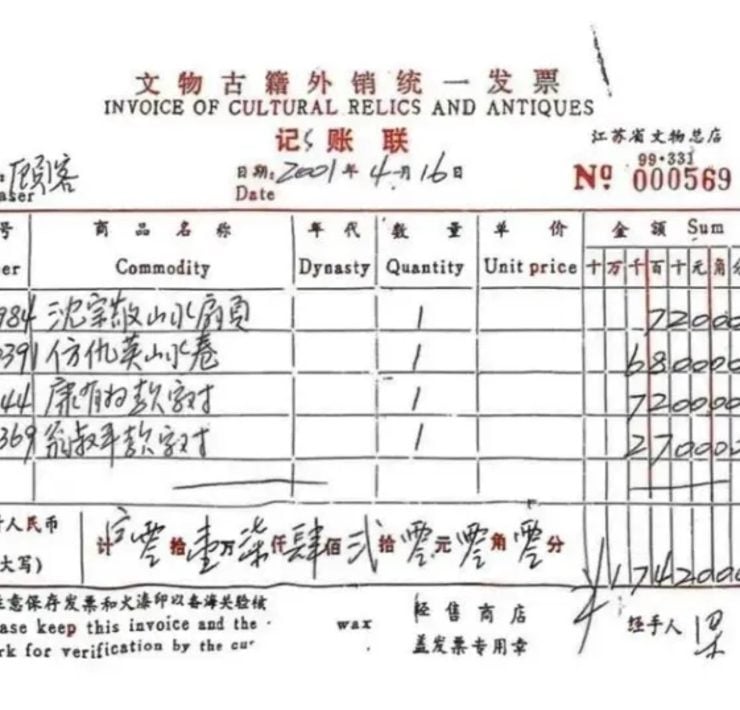 文物古籍外销统一发票
INVOICE OF CULTURAL RELICS AND ANTIQUES
记账联
江苏省文物总店
99·331
顾客 日期:2001年4月16日 Nº 000569
aser Date
号 商品名称 年代 数量 单价 金额 Sum
er Commodity Dynasty Quantity Unit price 十万千百十元角分
984 沈宗敬山水扇页 1 72000
0391 仿仇英山水卷 1 680000
44 康有为款字对 1 720000
369 翁叔平款字对 1 270000
人民币
大写) 计 零拾壹万柒仟肆佰贰拾零元零角零分 ¥1742000
注意保存发票和火漆印以备海关检核
ase keep this invoice and the wax
rk for verification by the cu
经售商店
盖发票专用章
经手人 梁